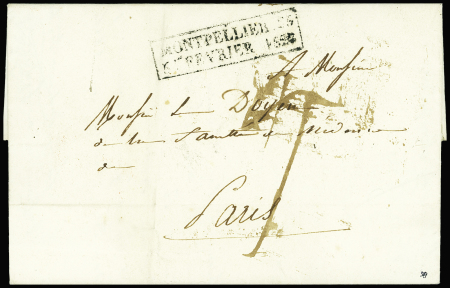 MONTPELLIER
FEVRIER
A Monsieur
Monsieur Le Doyen
de la Faculté de Medecine
de
Paris